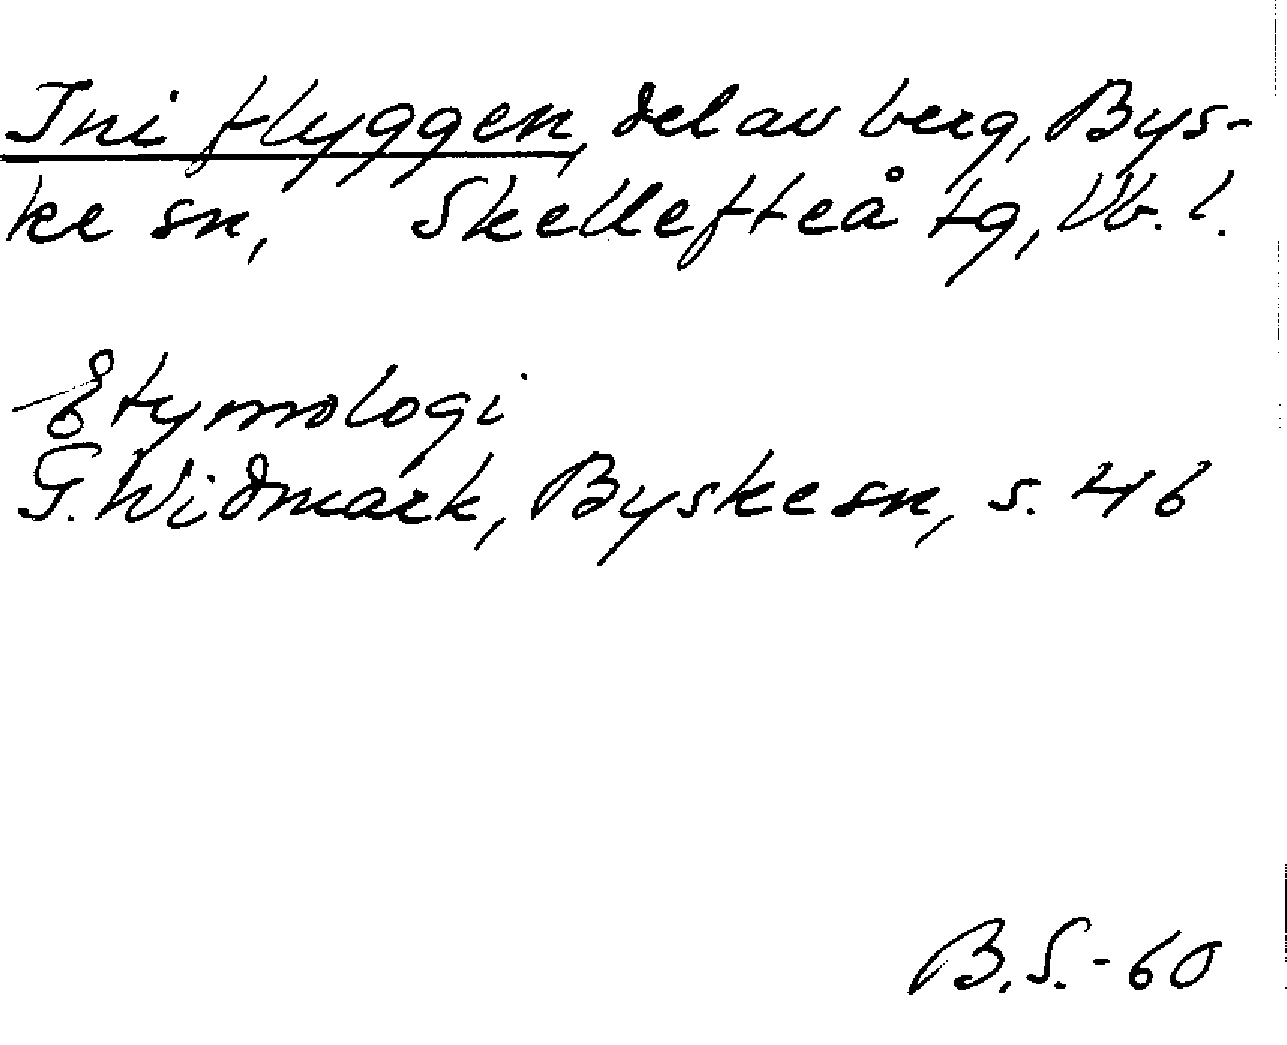 Ini flyggen, del av berg, Bys-
ke sn, Skellefteå tg, Vb. l.
Etymologi
G. Widmark, Byske sn, s. 46
B.S.-60